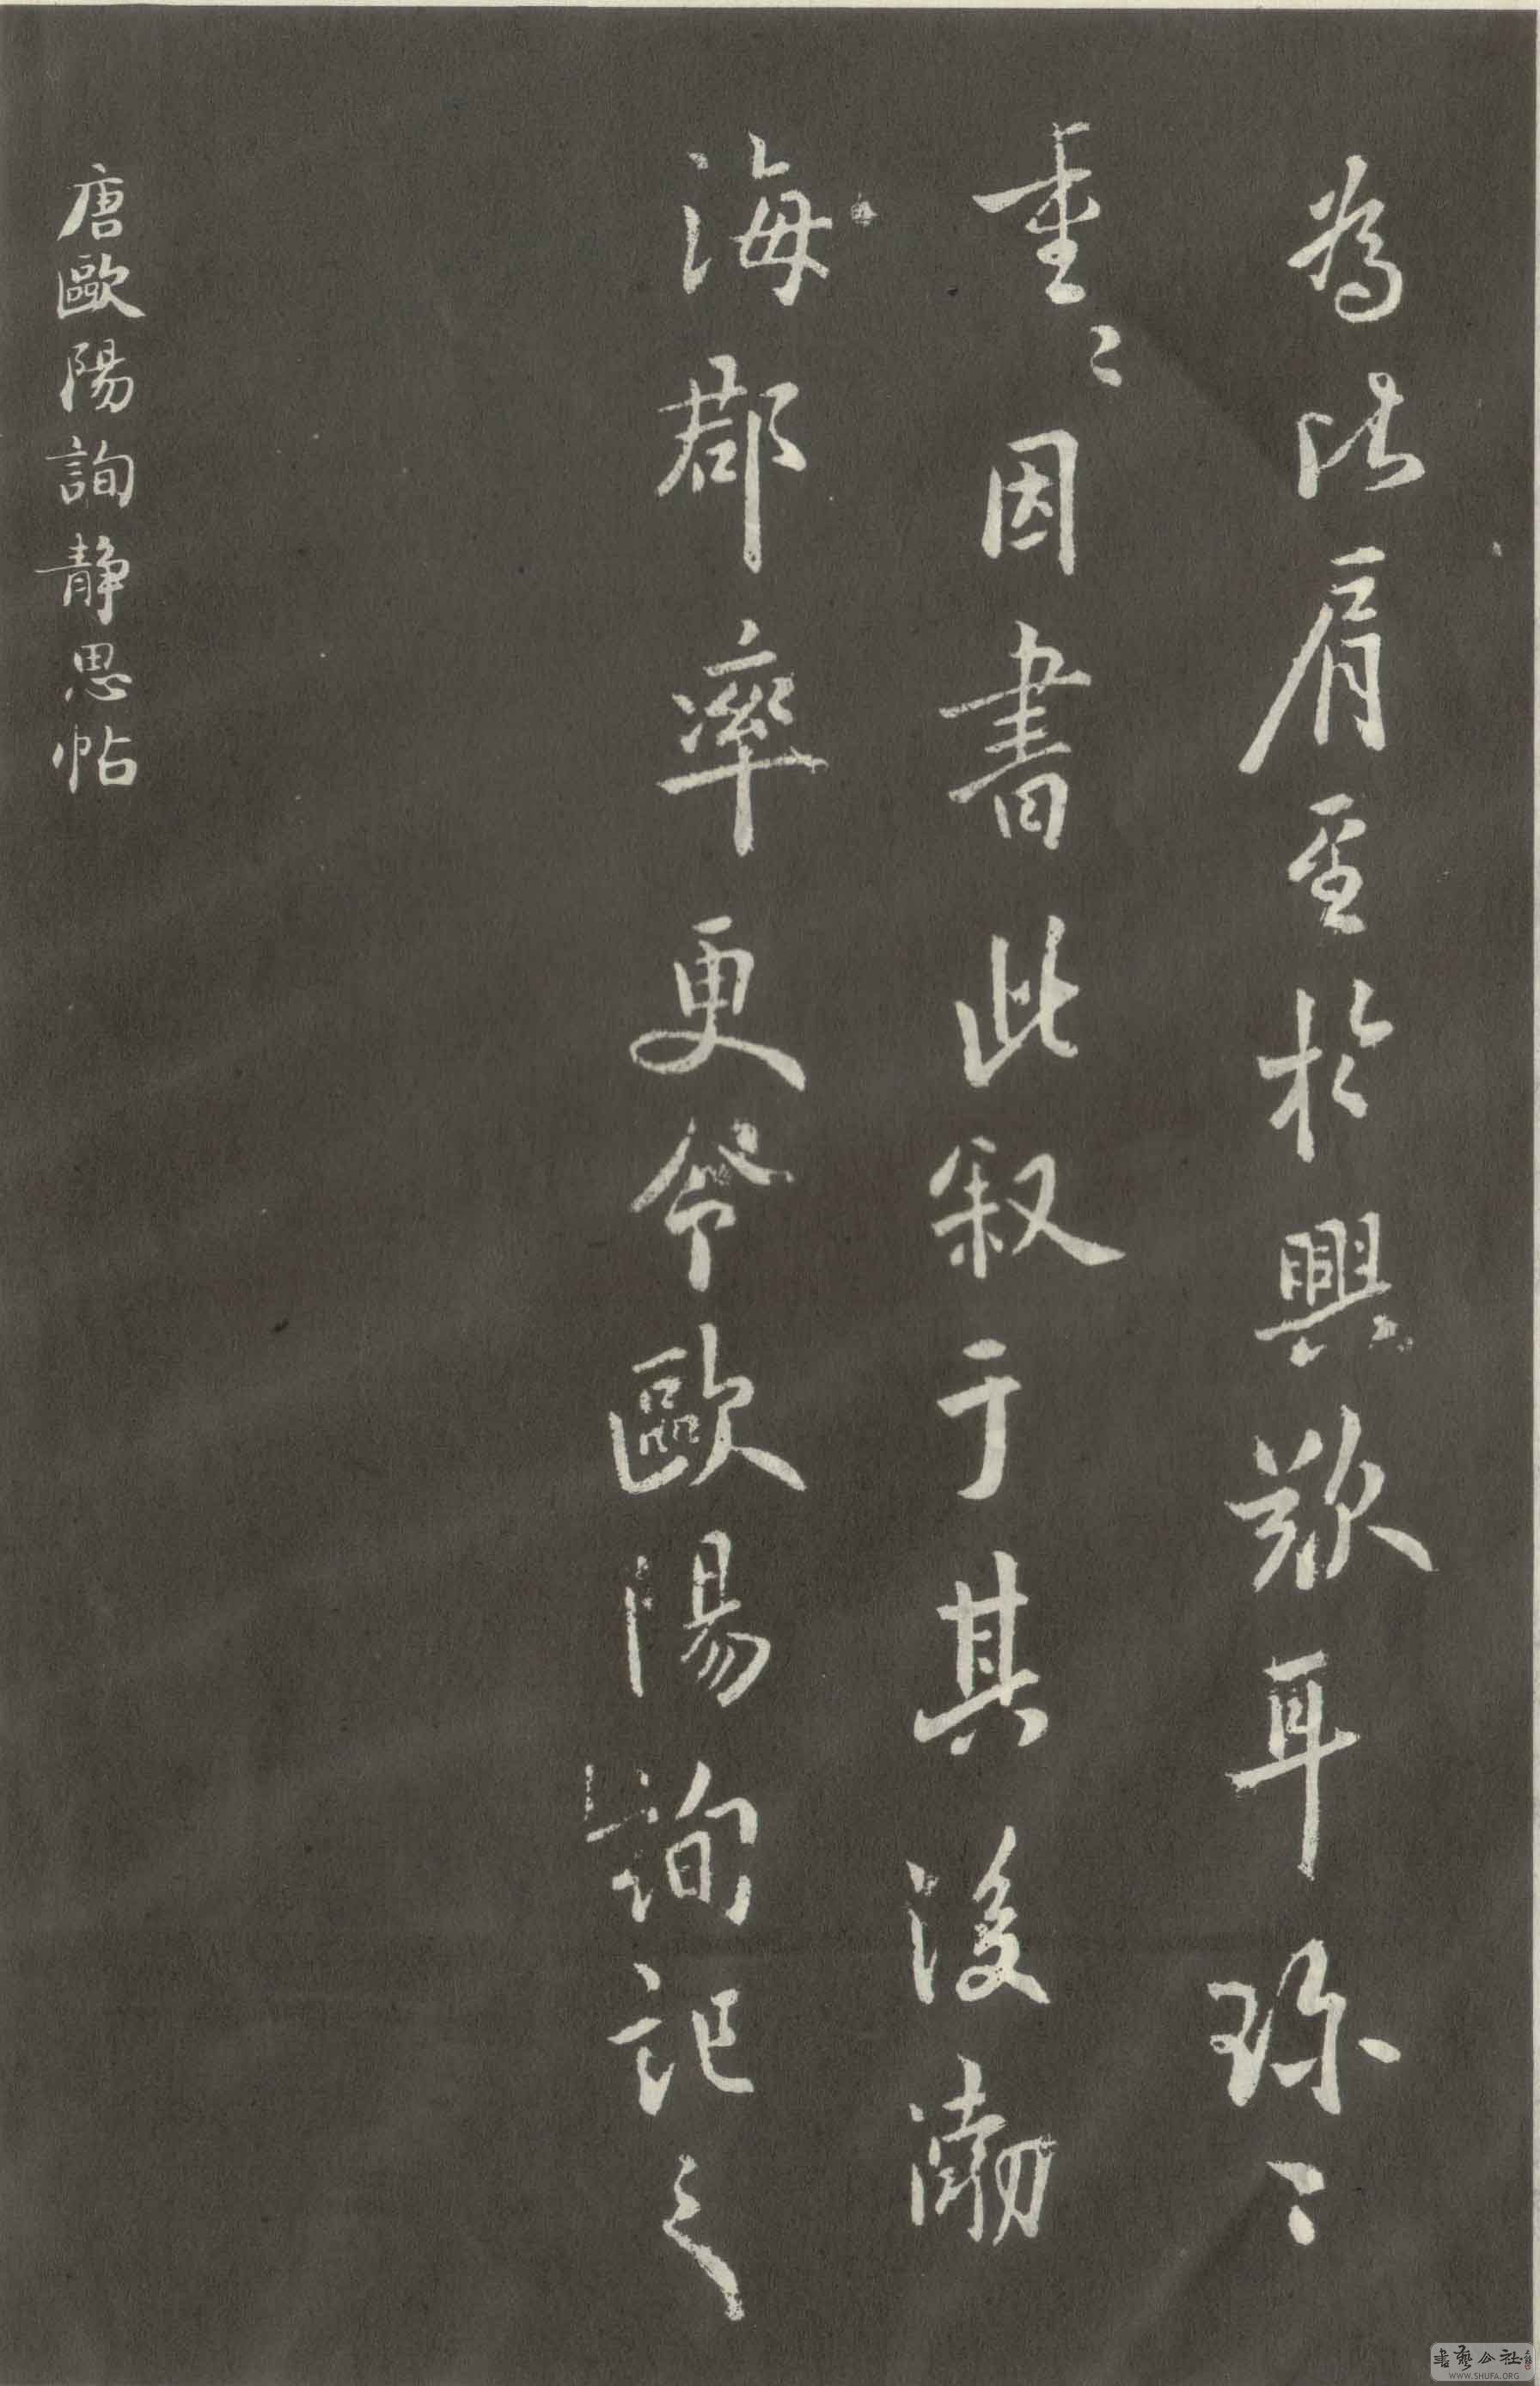 為 比肩至於興歎耳珍〻
重〻因書此叙于其後渤
海郡率更令歐陽詢記之
唐歐陽詢静思帖
書藝公社
WWW.SHUFA.ORG